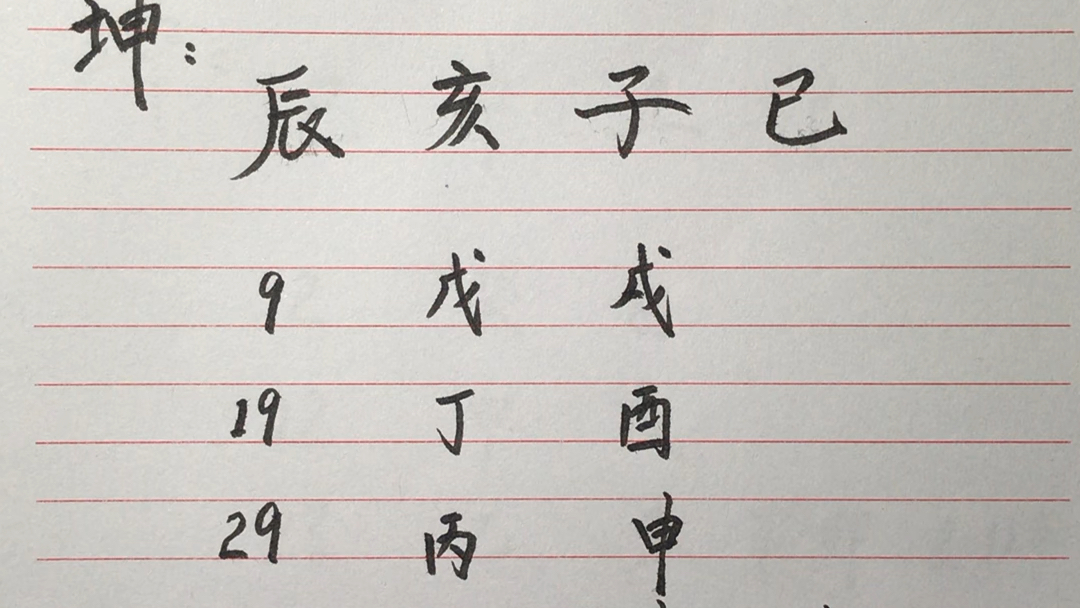 坤：
辰 亥 子 巳
9 戊 戌
19 丁 酉
29 丙 申